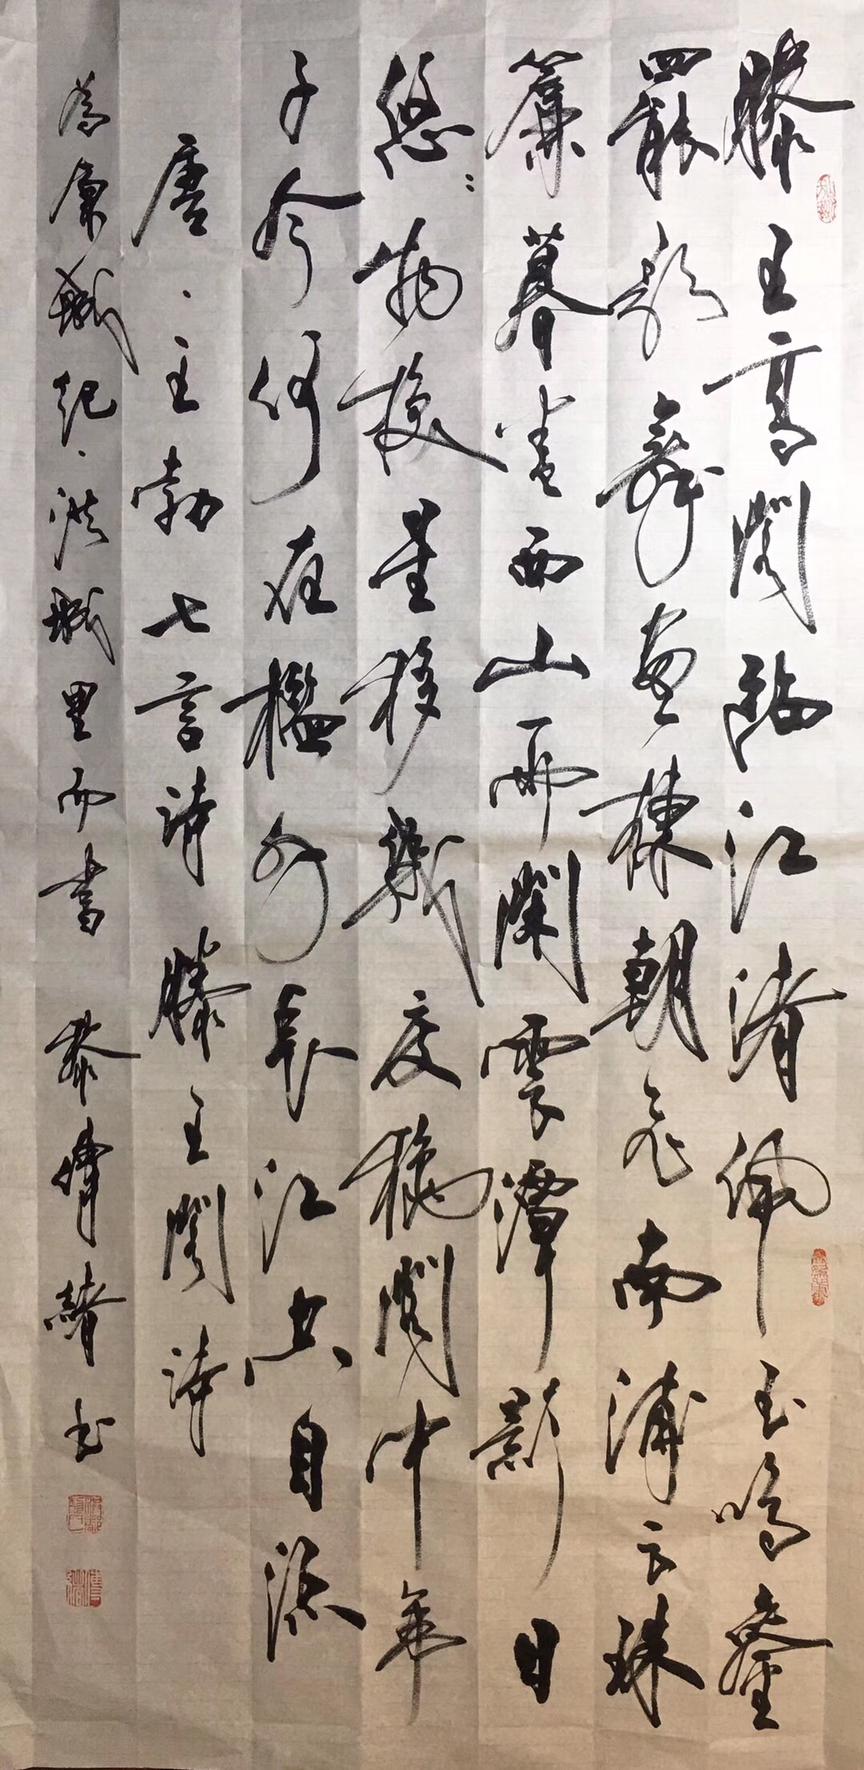 滕王高閣臨江渚佩玉鳴鑾
罷歌舞畫棟朝飛南浦云珠
簾暮卷西山雨閑雲潭影日
悠〻物換星移幾度秋閣中帝
子今何在檻外長江空自流
唐、王勃七言詩滕王閣詩
為 城 洪城里而書 书